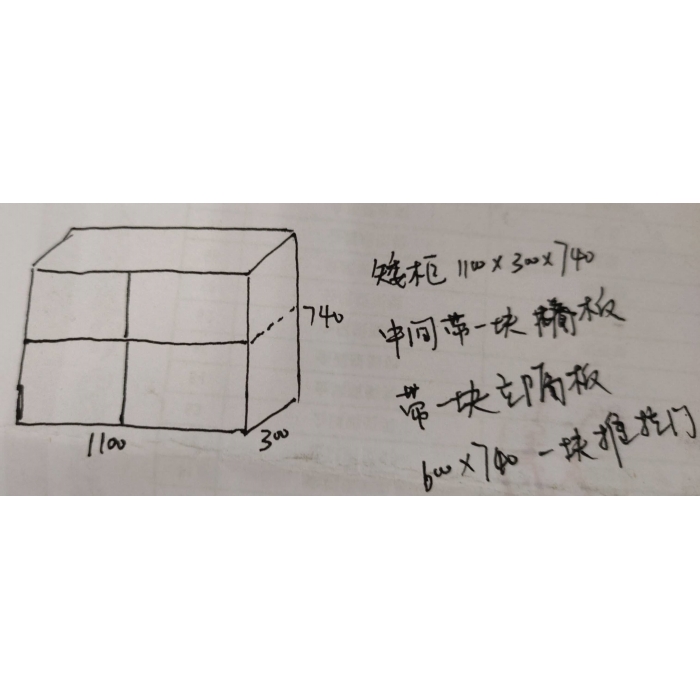 740
1100
300
矮柜 1100×300×740
中间带一块隔板
带一块立隔板
600×740 一块推拉门